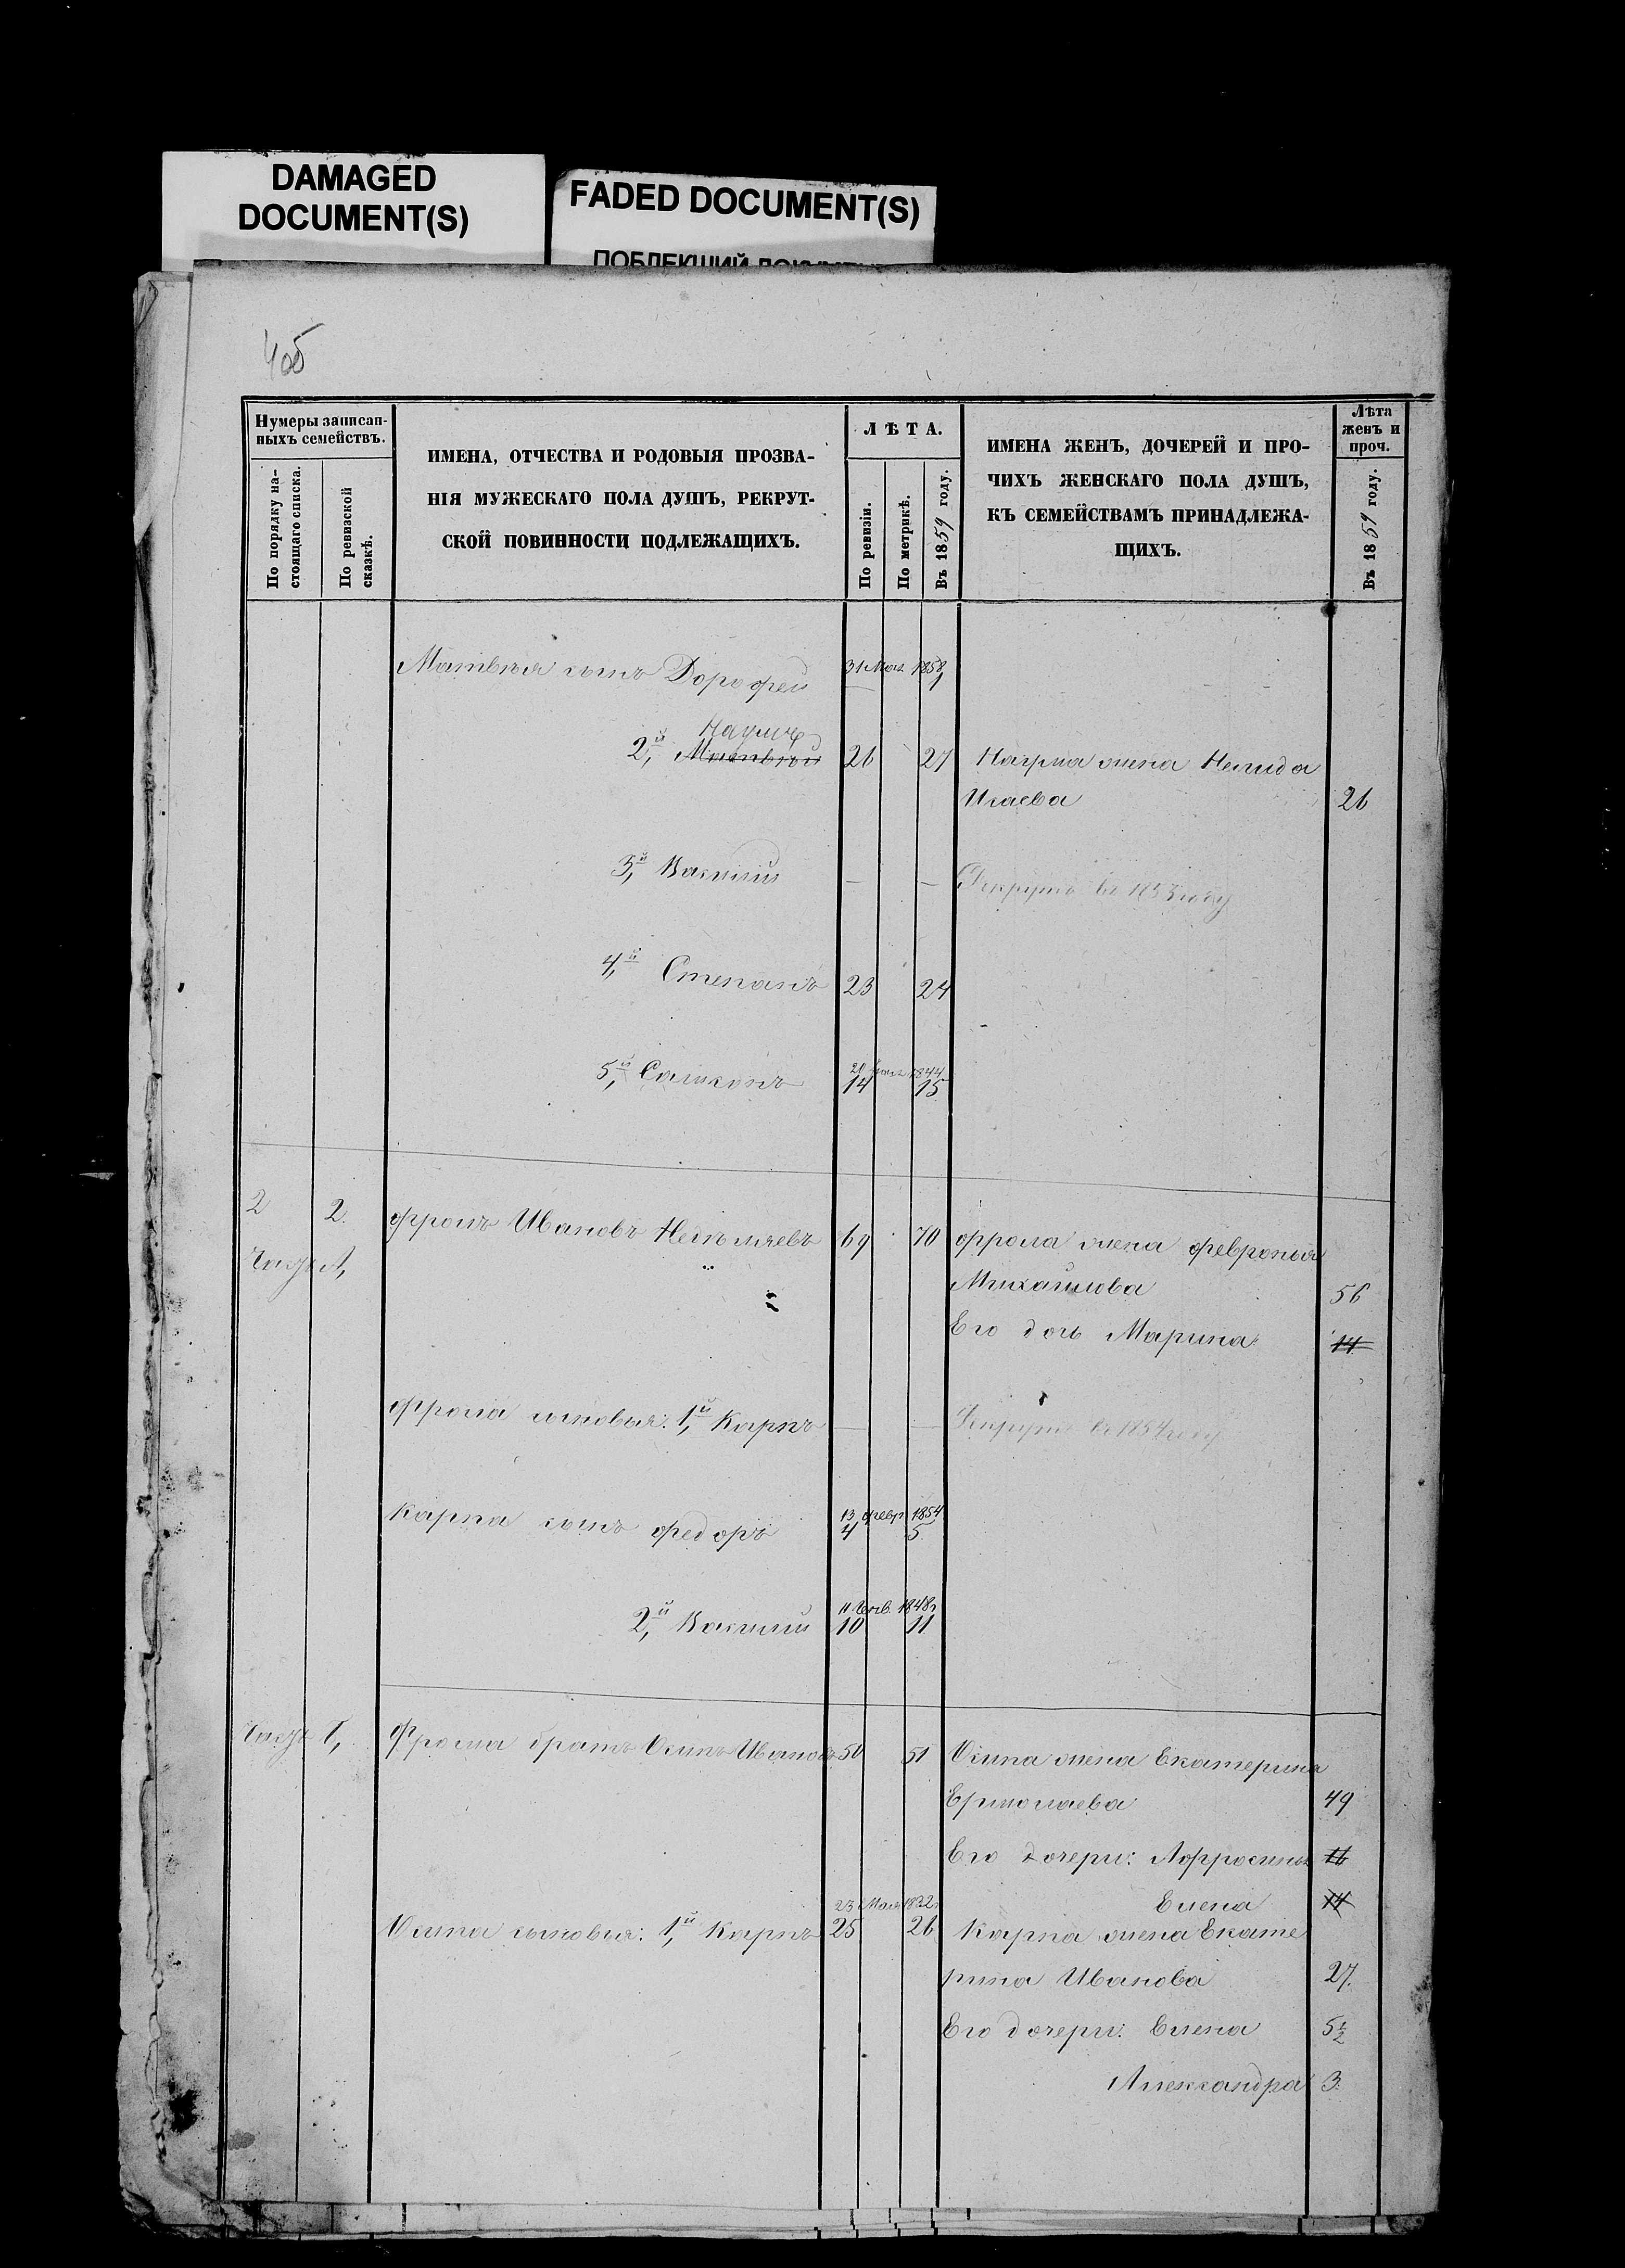 DAMAGED
DOCUMENT(S)
FADED DOCUMENT(S)
ПОБЛЕКШИЙ
Нумеры записан-
ныхъ семействъ.
По порядку на-
стоящаго списка.
По ревизской
сказкѣ.
ИМЕНА, ОТЧЕСТВА И РОДОВЫЯ ПРОЗВА-
НІЯ МУЖЕСКАГО ПОЛА ДУШЪ, РЕКРУТ-
СКОЙ ПОВИННОСТИ ПОДЛЕЖАЩИХЪ.
ЛѢТА.
По ревизіи.
По метрикѣ.
Въ 1859 году.
ИМЕНА ЖЕНЪ, ДОЧЕРЕЙ И ПРО-
ЧИХЪ ЖЕНСКАГО ПОЛА ДУШЪ,
КЪ СЕМЕЙСТВАМЪ ПРИНАДЛЕЖА-
ЩИХЪ.
Лѣта
женъ и
проч.
Въ 1859 году.
Матвѣя сынъ Дорофей 31 Мая 1858
— 1
Наумъ
2й, Матвѣй 26 27 Наума жена
Исаева 26
3й, Василій — — Рекрутъ въ 1853 году
4й, Степанъ 23 24
20 1844
5й, 14 15
2 2. Фролъ Ивановъ 69 70 Фрола жена Февронья
Часть А,
Михайлова 56
Его дочь Марина 14
Фрола сыновья: 1й, Карпъ — — Рекрутъ въ 1854 году
13 Февр 1854
Карпа сынъ Федоръ 4 5
11 Янв. 1848
2й, Василій 10 11
Часть Б, Фрола братъ Осипъ Ивановъ 50 51 Осипа жена Екатерина
Ермолаева 49
Его дочери: Афросинья 16
Елена 14
23 Мая 1832
Осипа сыновья: 1й, Карпъ 25 26 Карпа жена Екате
рина Иванова 27.
Его дочери: Елена 5½
Александра 3.